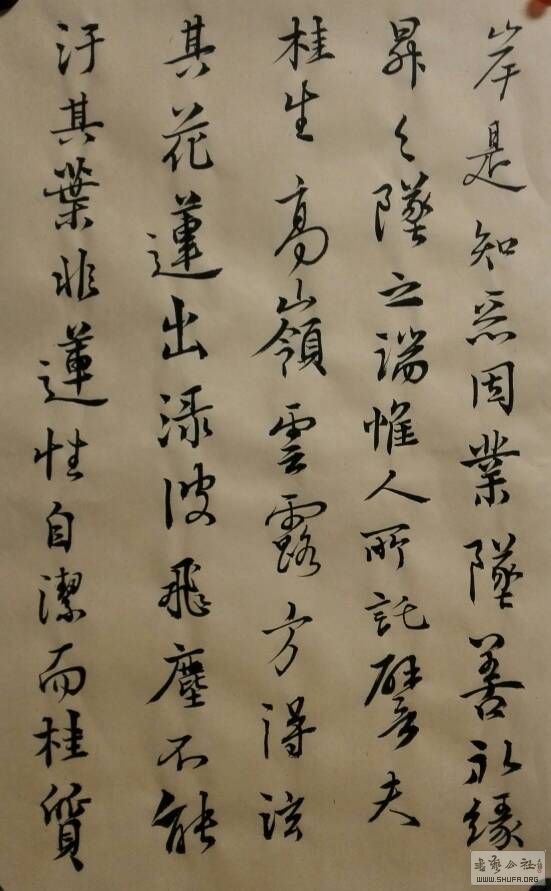 岸是知恶因業墜善永緣
昇々墜之端惟人所託譬夫
桂生高嶺雲露方得泫
其花蓮出渌波飛塵不能
汙其葉非蓮性自潔而桂質
WWW.SHUFA.ORG